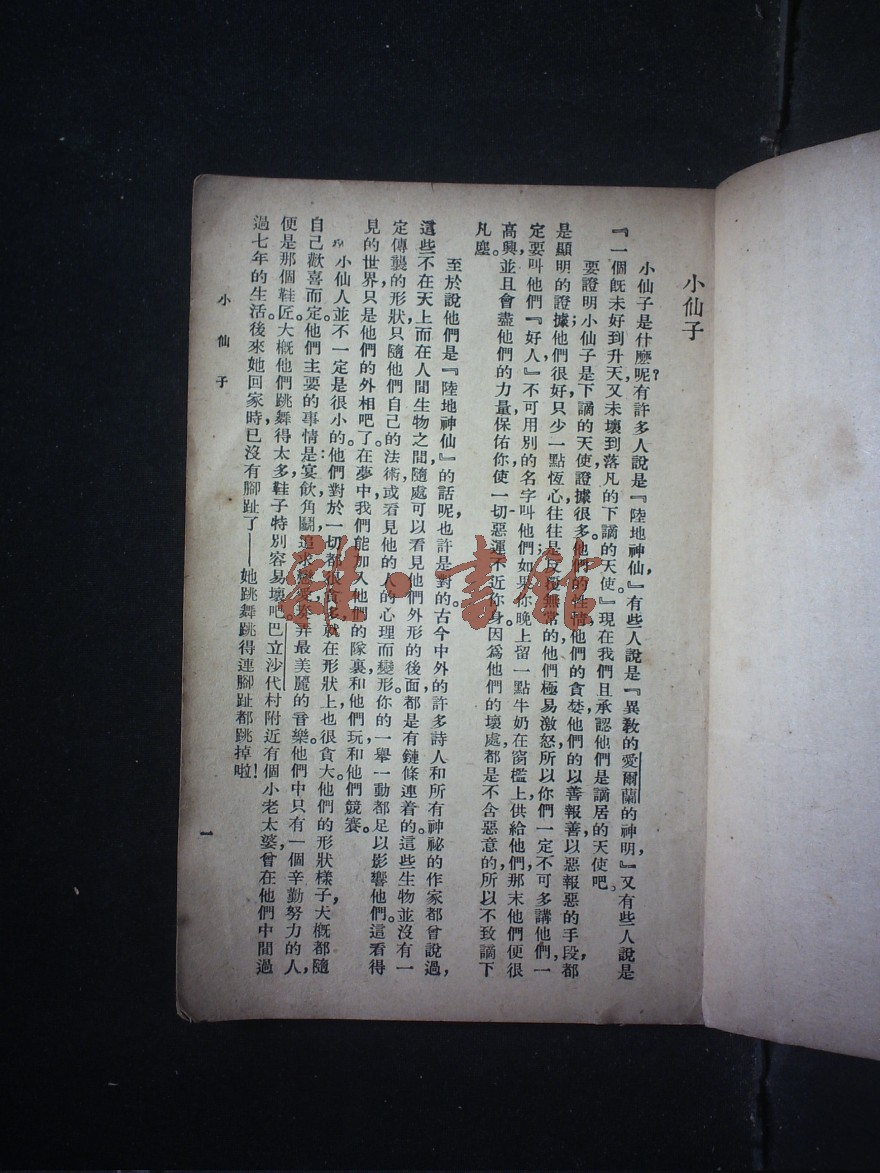 小仙子
小仙子是什麼呢？有許多人說是『陸地神仙，』有些人說是『異教的愛爾蘭的神明，』又有些人說是
『一個旣未好到升天，又未壞到落凡的下謫的天使。』現在我們且承認他們是謫居的天使吧。
要證明小仙子是下謫的天使，證據很多。他們的性情，他們的貪婪，他們的以善報善以惡報惡的手段，都
是顯明的證據；他們很好，只少一點恆心，往往是反覆無常的；他們極易激怒，所以你們一定不可多講他們，一
定要叫他們『好人，』不可用別的名字叫他們，如果你晚上留一點牛奶在窗檻上供給他們，那末他們便很
高興，並且會盡他們的力量，保佑你，使一切惡運不近你身。因爲他們的壞處都是不含惡意的，所以不致謫下
凡塵。
至於說他們是『陸地神仙』的話呢，也許是對的。古今中外的許多詩人和所有神祕的作家都曾說過，
這些不在天上而在人間生物之間，隨處可以看見他們，外形的後面都是有鏈條連着的。這些生物並沒有一
定傳襲的形狀，只隨他們自己的法術，或看見他的人的心理而變形。你的一舉一動都足以影響他們。這看得
見的世界只是他們的外相吧了。在夢中我們能加入他們的隊裏，和他們玩，和他們競賽。
小仙人並不一定是很小的。他們對於一切都很貪多，就在形狀上也很貪大。他們的形狀樣子，大概都隨
自己歡喜而定。他們主要的事情是：宴飲，角鬭，追求戀愛，奏弄最美麗的音樂。他們中只有一個辛勤努力的人，
便是那個鞋匠。大概他們跳舞得太多，鞋子特別容易壞吧。巴立沙代村附近有個小老太婆，曾在他們中間過
過七年的生活。後來她回家時，已沒有腳趾了——她跳舞跳得連腳趾都跳掉啦！
小仙子
一
雜·書館